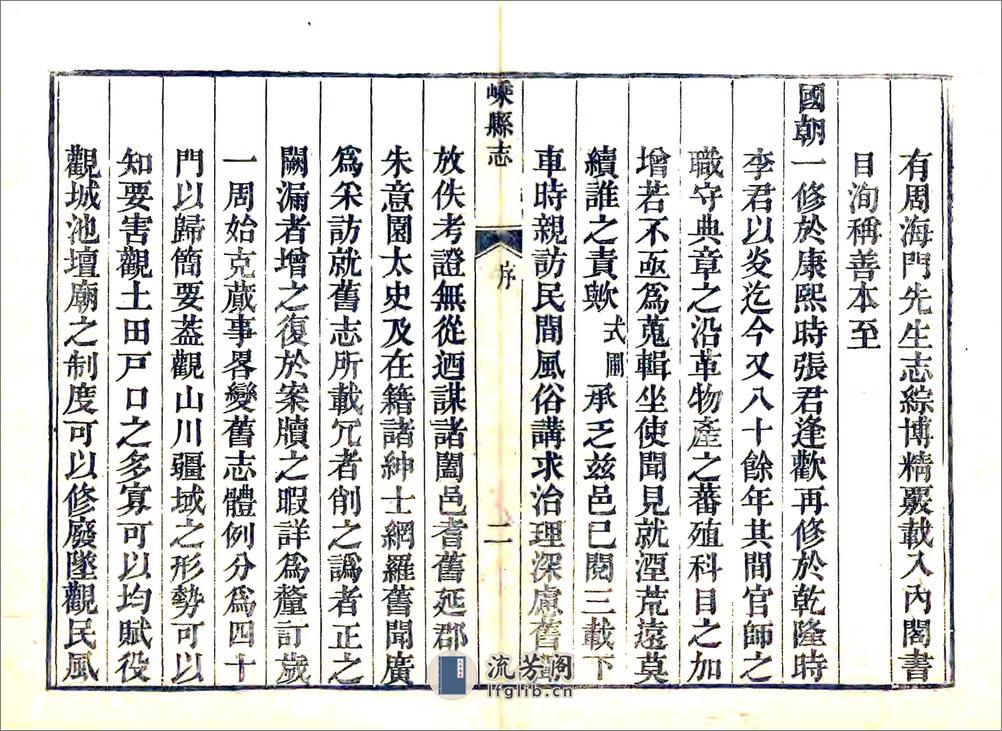 有周海門先生志綜博精覈載入內閣書
目洵稱善本至
國朝一修於康熙時張君逢歡再修於乾隆時
李君以炎迄今又八十餘年其間官師之
職守典章之沿革物產之蕃殖科目之加
增若不亟爲蒐輯坐使聞見就湮荒遠莫
續誰之責歟式圃承乏兹邑已閱三載下
車時親訪民間風俗講求治理深慮舊
嵊縣志
序
二
放佚考證無從迺謀諸闔邑耆舊延郡
朱意園太史及在籍諸紳士網羅舊聞廣
爲采訪就舊志所載冗者削之譌者正之
闕漏者增之復於案牘之暇詳爲釐訂歲
一周始克蕆事畧變舊志體例分爲四十
門以歸簡要葢觀山川疆域之形勢可以
知要害觀土田戸口之多寡可以均賦役
觀城池壇廟之制度可以修廢墜觀民風
流芳閣
lfglib.cn